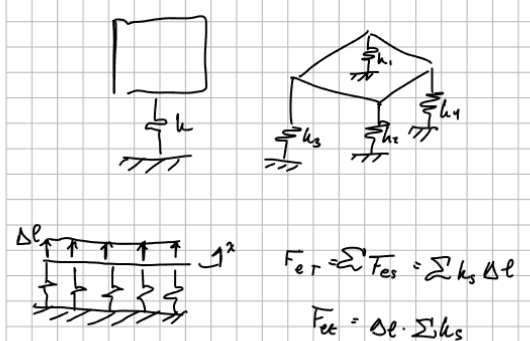 k
k₁
k₃
k₂
k₄
Δl
x
F_eT = Σ F_es = Σ k_s Δl
F_et = Δl · Σ k_s